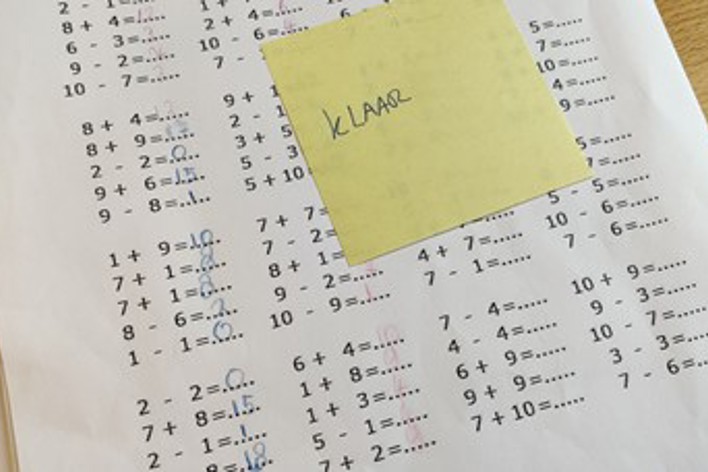 8 + 4=
6 - 3=
9 - 2=
10 - 7=
2 + 4=
10 - 6=
7 -
5=
7=
10=
4=
9=
8 + 4=
8 + 9=
2 - 2=0
9 + 6=15
9 - 8=1
9 + 1
2 - 1
3 + 5
5 - 3
5 + 10
KLAAR
5=
7=
5 - 5=
10 - 6=
7 - 6=
1 + 9=10
7 + 1=8
7 + 1=8
8 - 6=2
1 - 1=0
7 + 7=
7 - 2=
8 + 1=
9 - 2=
10 - 9=1
4 + 7=
7 - 1=
2 - 2=0
7 + 8=15
2 - 1=1
8=18
6 + 4=10
1 + 8=9
1 + 3=4
5 - 1=
7 + 2=9
7 - 4=
4 - 4=
6 + 9=
9 + 9=
7 + 10=
10 + 9=
9 - 3=
10 - 7=
3 - 3=
7 - 6=